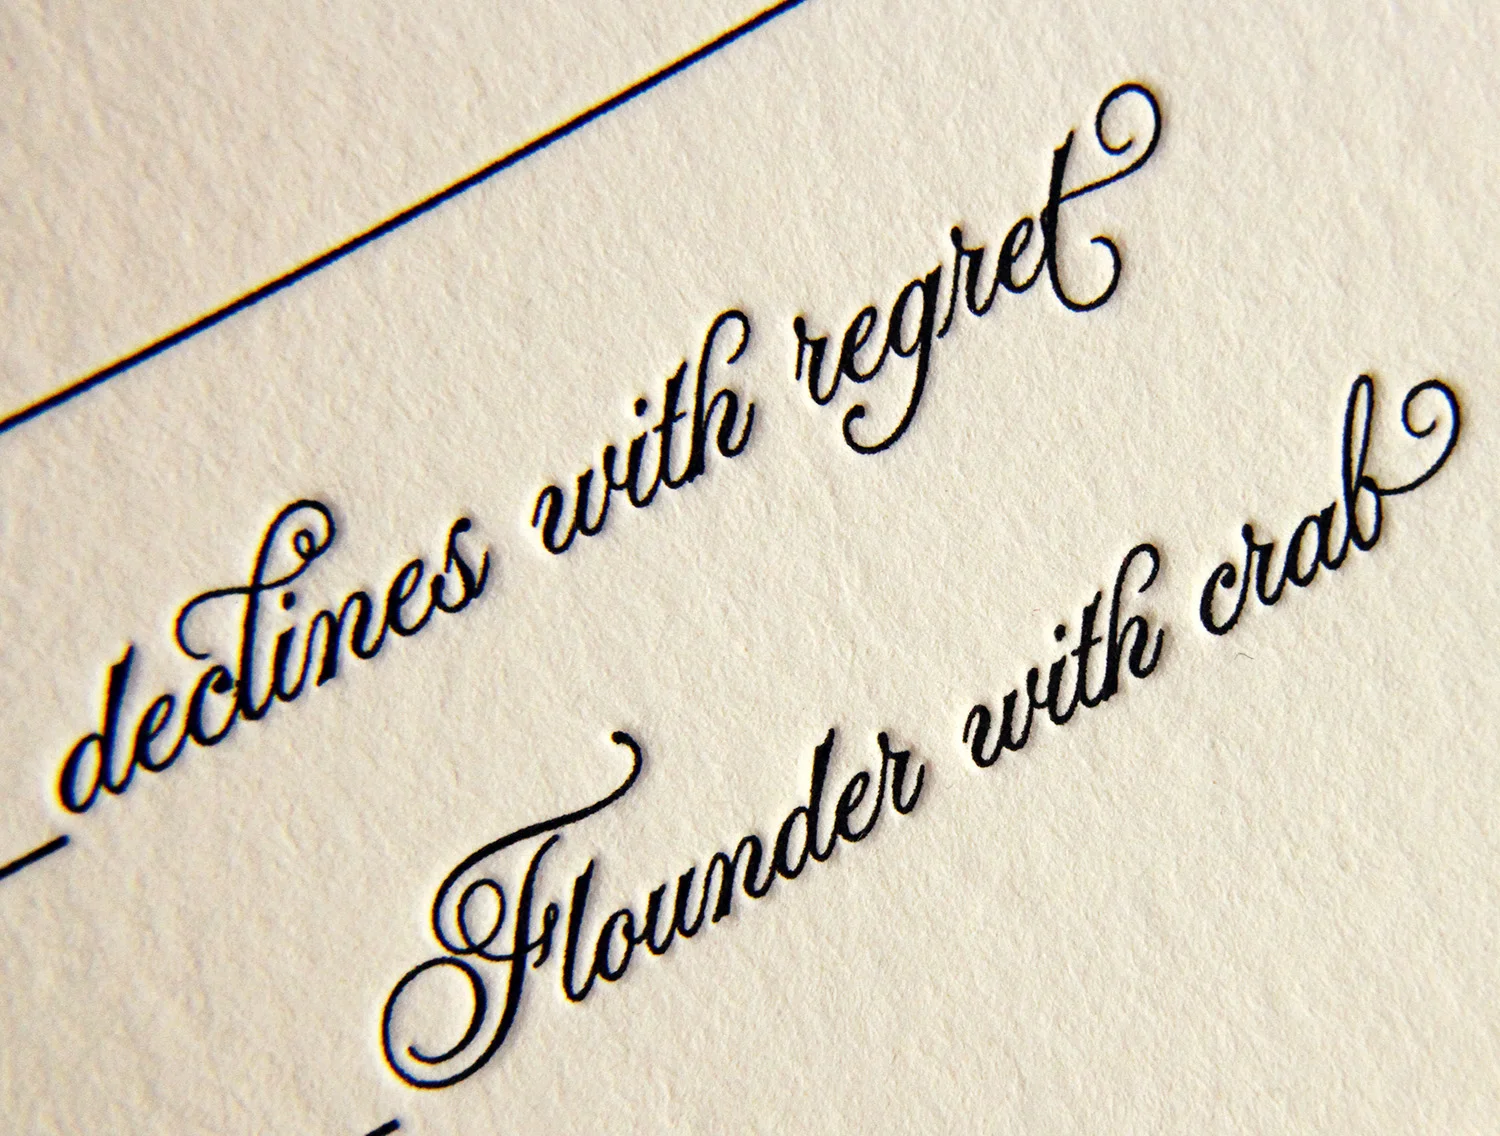 declines with regret
Flounder with crab